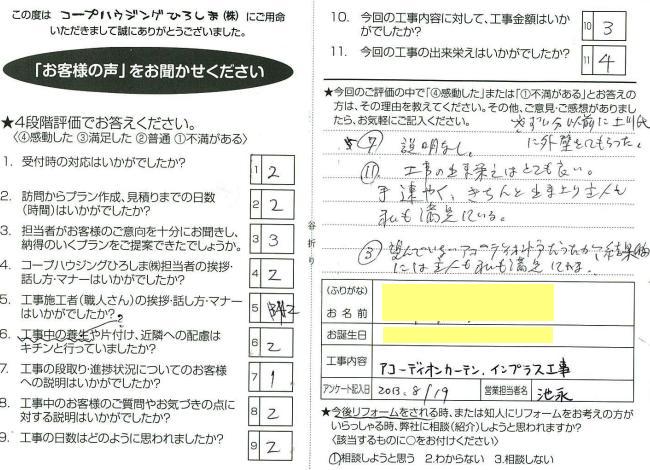 この度は コープハウジングひろしま(株) にご用命
いただきまして誠にありがとうございました。
「お客様の声」をお聞かせください
★4段階評価でお答えください。
〈④感動した ③満足した ②普通 ①不満がある〉
1. 受付時の対応はいかがでしたか?
1 2
2. 訪問からプラン作成、見積りまでの日数
(時間)はいかがでしたか?
2 2
3. 担当者がお客様のご意向を十分にお聞きし、
納得のいくプランをご提案できたでしょうか。
3 3
4. コープハウジングひろしま㈱担当者の挨拶・
話し方・マナーはいかがでしたか?
4 2
5. 工事施工者(職人さん)の挨拶・話し方・マナー
はいかがでしたか?
5
6. 工事中の養生や片付け、近隣への配慮は
キチンと行っていましたか?
6 2
7. 工事の段取り・進捗状況についてのお客様
への説明はいかがでしたか?
7 1
8. 工事中のお客様のご質問やお気づきの点に
対する説明はいかがでしたか?
8 2
9. 工事の日数はどのように思われましたか?
9 2
谷折り
10. 今回の工事内容に対して、工事金額はいか
がでしたか?
10 3
11. 今回の工事の出来栄えはいかがでしたか?
11 4
★今回のご評価の中で「④感動した」または「①不満がある」とお答えの
方は、その理由を教えてください。その他、ご意見・ご感想がありまし
たら、お気軽にご記入ください。
に外壁をしてもらった。
⑦ 説明なし。
⑪ 工事の出来栄えはとても良い。
手速やく、きちんと仕上り主人も
私も満足している。
③ 望んでいないアコーディオンドアだったが、結果的
には主人も私も満足してる。
(ふりがな)
お名前
お誕生日
工事内容 アコーディオンカーテン、インプラス工事
アンケート記入日 2013.8/19 営業担当者名 池永
★今後リフォームをされる時、または知人にリフォームをお考えの方が
いらっしゃる時、弊社に相談(紹介)しようと思われますか?
〈該当するものに○をお付けください〉
①相談しようと思う 2.わからない 3.相談しない